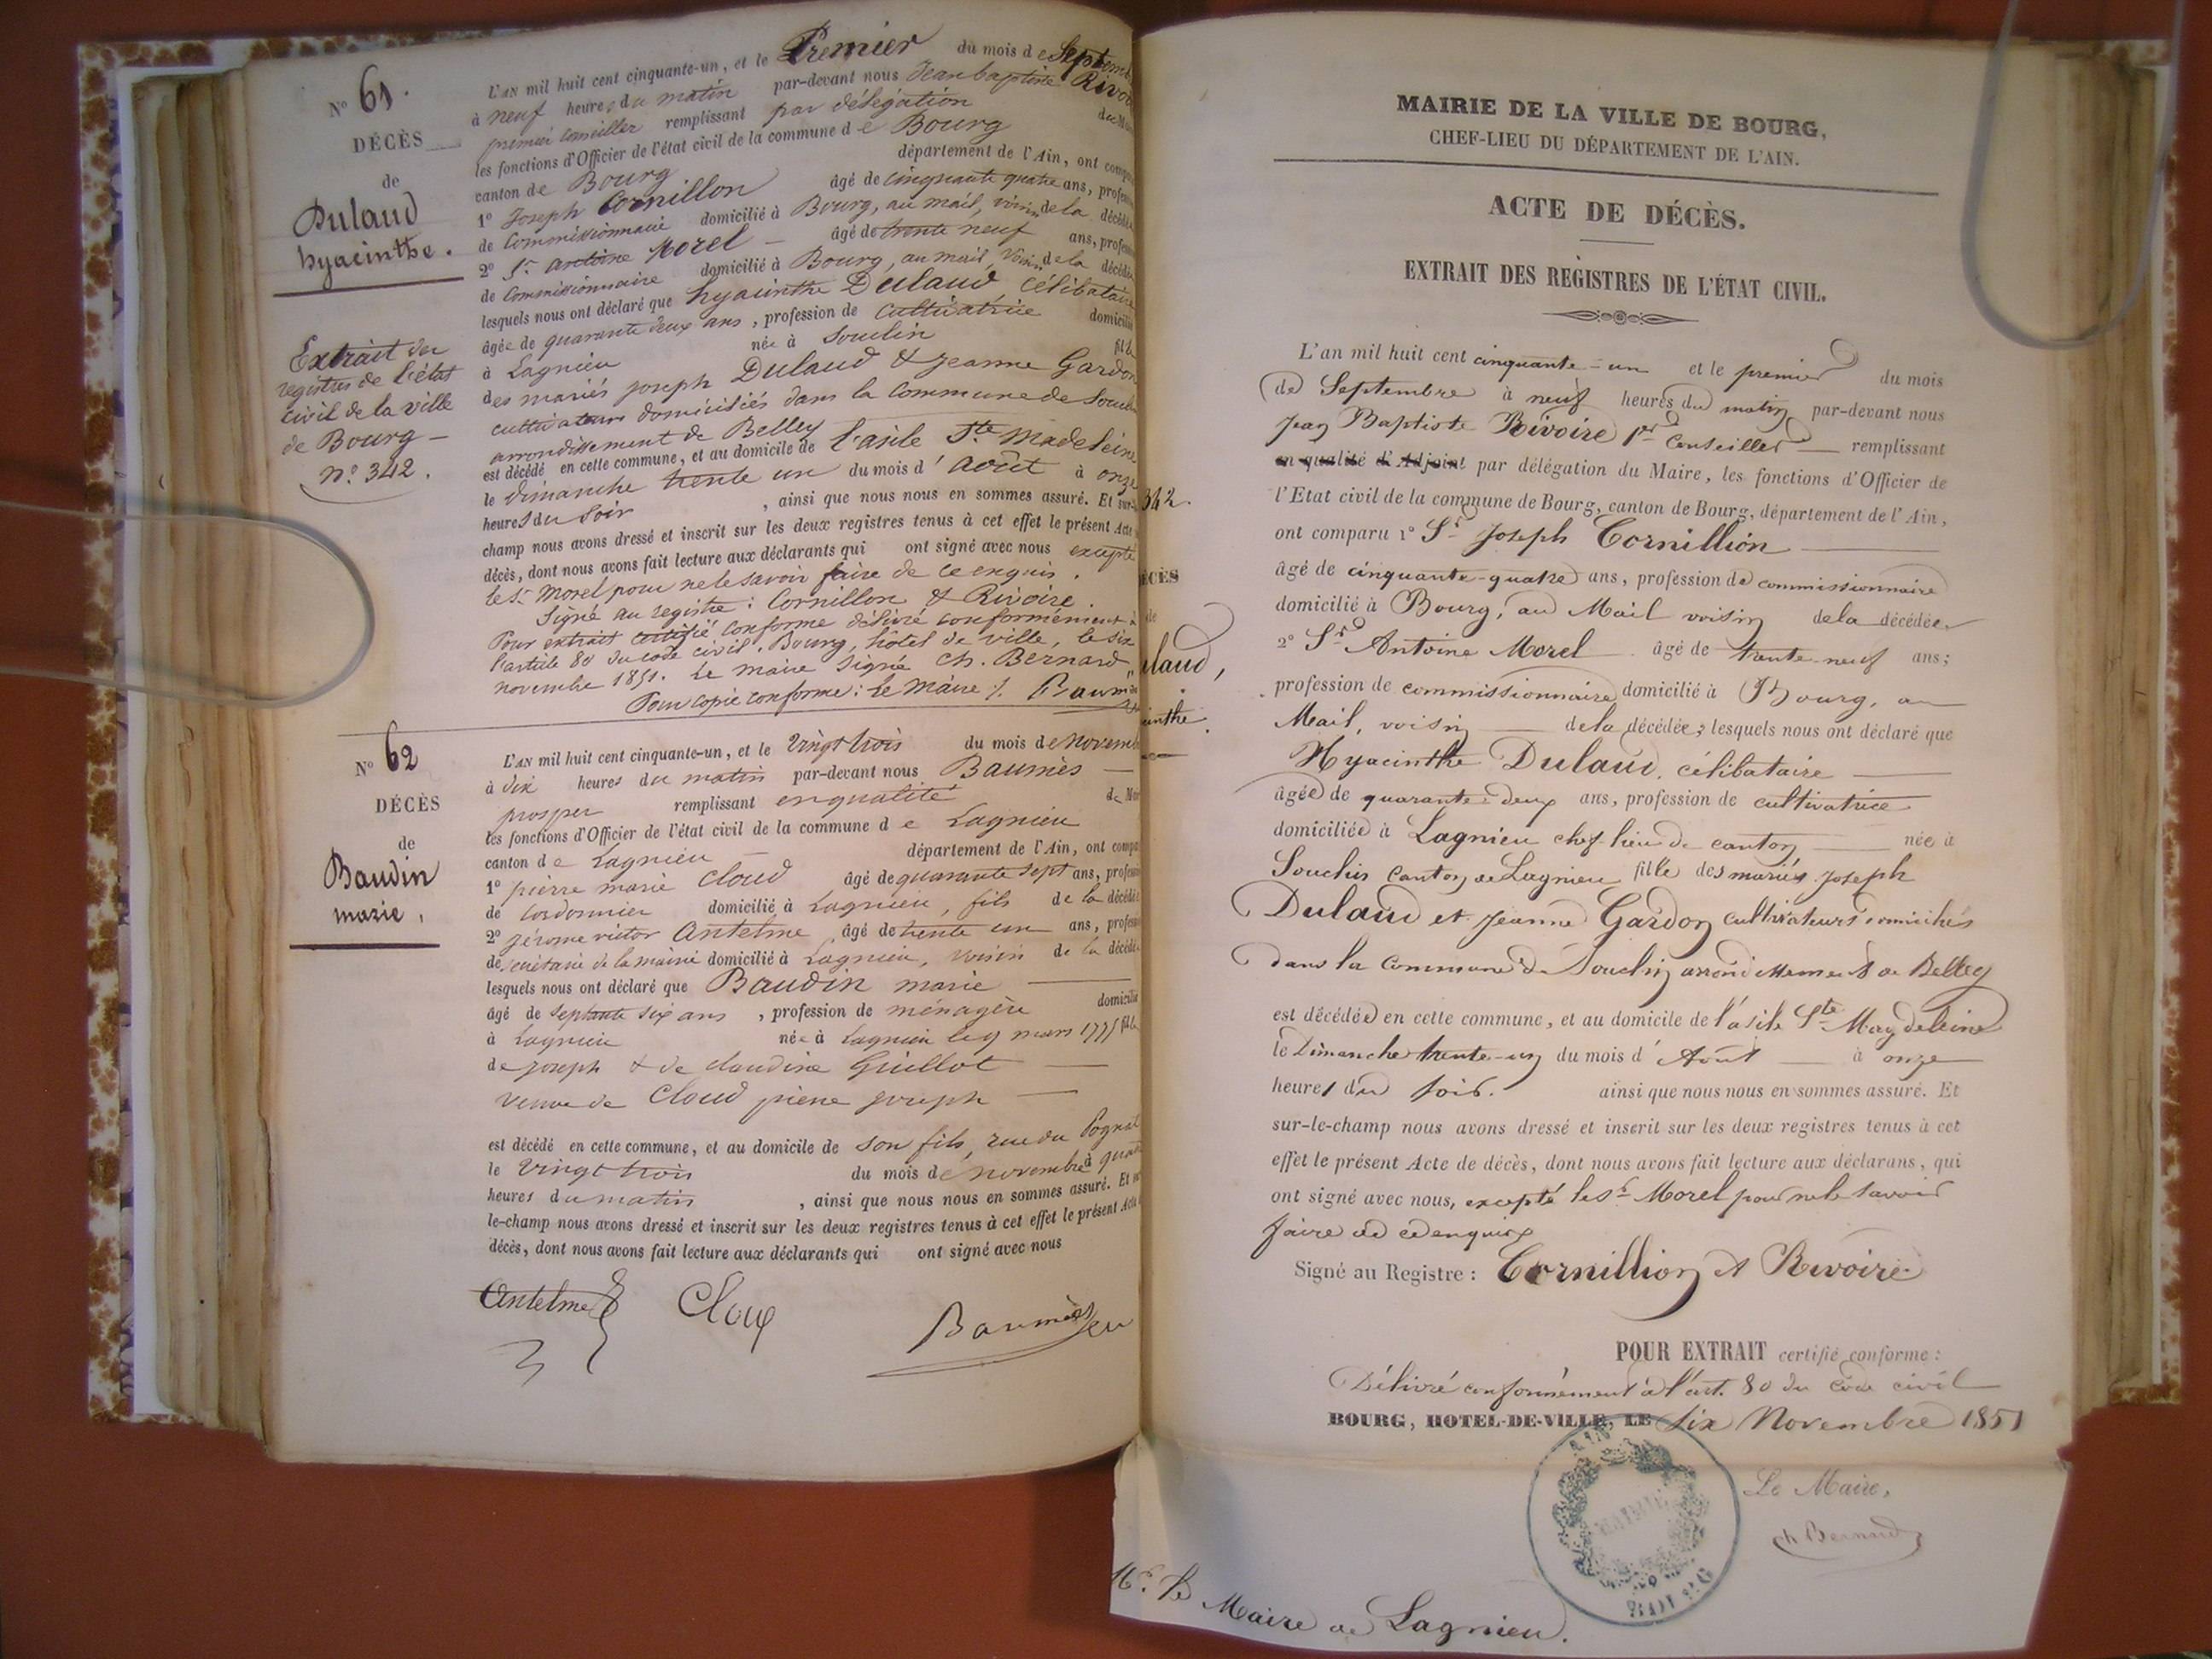 N° 61.
DÉCÈS
de
Dulaud
hyacinthe.
Extrait des
registres de l'état
civil de la ville
de Bourg —
n°. 342.
L'AN mil huit cent cinquante-un, et le Premier du mois de Septemb
à neuf heures du matin par-devant nous Jean baptiste Rivoi
premier Conseiller remplissant par délégation du M
les fonctions d'Officier de l'état civil de la commune de Bourg
canton de Bourg département de l'Ain, ont comp
1° Joseph Cornillon âgé de cinquante quatre ans, profess
de Commissionnaire domicilié à Bourg, au mail, voisin de la décédé
2° Sr. antoine Morel — âgé de trente neuf ans, profess
de Commissionnaire domicilié à Bourg, au mail, voisin de la décédé
lesquels nous ont déclaré que hyacinthe Dulaud célibataire
âgée de quarante deux ans, profession de cultivatrice domicilié
à Lagnieu née à Souclin fille
des mariés joseph Dulaud & jeanne Gardon
cultivateurs domiciliés dans la Commune de Souclin
arrondissement de Belley
est décédé en cette commune, et au domicile de l'asile Ste. Madeleine
le dimanche trente un du mois d'août à onze
heures du soir, ainsi que nous nous en sommes assuré. Et sur-
champ nous avons dressé et inscrit sur les deux registres tenus à cet effet le présent Acte
décès, dont nous avons fait lecture aux déclarants qui ont signé avec nous excepté
le Sr. Morel pour ne le savoir faire de ce enquis.
Signé au registre: Cornillon & Rivoire.
Pour extrait certifié conforme délivré conformément à
l'article 80 du code civil. Bourg, hôtel de ville, le six
novembre 1851. Le maire signé Ch. Bernard
Pour copie conforme: Le Maire
N° 62
DÉCÈS
de
Baudin
marie,
L'AN mil huit cent cinquante-un, et le Vingt trois du mois de Novemb
à dix heures du matin par-devant nous Baumès —
prosper remplissant en qualité de Mai
les fonctions d'Officier de l'état civil de la commune de Lagnieu
canton de Lagnieu — département de l'Ain, ont comp
1° pierre marie Cloud âgé de quarante sept ans, profess
de Cordonnier domicilié à Lagnieu, fils de la décédé
2° jérome victor Antelme âgé de trente un ans, profess
de secrétaire de la mairie domicilié à Lagnieu, voisin de la décédé
lesquels nous ont déclaré que Baudin marie —
âgé de septante six ans, profession de ménagère domicilié
à Lagnieu née à Lagnieu le 9 mars 1775 fille
de joseph & de claudine Guillot —
veuve de Cloud pierre joseph —
est décédé en cette commune, et au domicile de son fils, rue du Pognat
le Vingt trois du mois de novembre à quat
heures du matin, ainsi que nous nous en sommes assuré. Et sur
le-champ nous avons dressé et inscrit sur les deux registres tenus à cet effet le présent Acte
décès, dont nous avons fait lecture aux déclarants qui ont signé avec nous
Antelme Cloud Baumès
342.
ÉCÈS
de
ulaud,
cinthe.
MAIRIE DE LA VILLE DE BOURG,
CHEF-LIEU DU DÉPARTEMENT DE L'AIN.
ACTE DE DÉCÈS.
EXTRAIT DES REGISTRES DE L'ÉTAT CIVIL.
L'an mil huit cent cinquante-un et le premier du mois
de Septembre à neuf heures du matin par-devant nous
Jean Baptiste Rivoire 1er Conseiller — remplissant
en qualité d'Adjoint par délégation du Maire, les fonctions d'Officier de
l'Etat civil de la commune de Bourg, canton de Bourg, département de l'Ain,
ont comparu 1° Sr Joseph Cornillion —
âgé de cinquante-quatre ans, profession de commissionnaire
domicilié à Bourg, au Mail voisin de la décédée
2° Sr Antoine Morel âgé de trente-neuf ans;
profession de commissionnaire domicilié à Bourg, au
Mail, voisin — de la décédée; lesquels nous ont déclaré que
Hyacinthe Dulaud, célibataire —
âgée de quarante-deux ans, profession de cultivatrice
domiciliée à Lagnieu chef-lieu de canton — née à
Souclin Canton de Lagnieu fille des mariés Joseph
Dulaud et Jeanne Gardon cultivateurs domiciliés
dans la Commune de Souclin arrondissement de Belley
est décédée en cette commune, et au domicile de l'asile Ste Magdeleine
le Dimanche trente-un du mois d'Août — à onze
heures du soir. ainsi que nous nous en sommes assuré. Et
sur-le-champ nous avons dressé et inscrit sur les deux registres tenus à cet
effet le présent Acte de décès, dont nous avons fait lecture aux déclarans, qui
ont signé avec nous, excepté le Sr Morel pour ne le savoir
faire de ce enquis
Signé au Registre: Cornillion et Rivoire
POUR EXTRAIT certifié conforme:
Délivré conformément à l'art. 80 du Code civil
BOURG, HOTEL-DE-VILLE, LE Six Novembre 1851
Le Maire,
Ch Bernard
AIN
MAIRIE
BOURG
Mr. le Maire de Lagnieu.